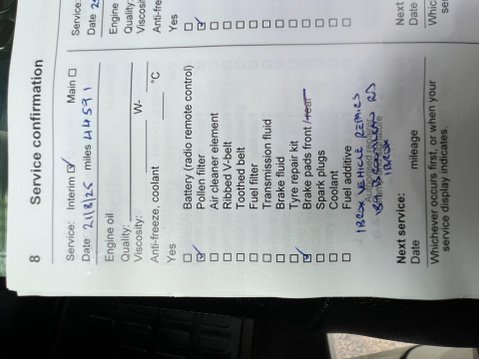 8 Service confirmation
Service: Interim ☑ Main ☐
Date 21/8/25 miles 44591
Engine oil
Quality:
Viscosity: W-
Anti-freeze, coolant °C
Yes
☐ Battery (radio remote control)
☑ Pollen filter
☐ Air cleaner element
☐ Ribbed V-belt
☐ Toothed belt
☐ Fuel filter
☐ Transmission fluid
☐ Brake fluid
☐ Tyre repair kit
☑ Brake pads front /rear
☐ Spark plugs
☐ Coolant
☐ Fuel additive
IBROX VEHICLE REPAIRS
RD
IBROX
Next service:
Date mileage
Whichever occurs first, or when your
service display indicates.
Service:
Date
Engine
Quality:
Viscosi
Anti-fre
Yes
Next
Date
Whic
ser